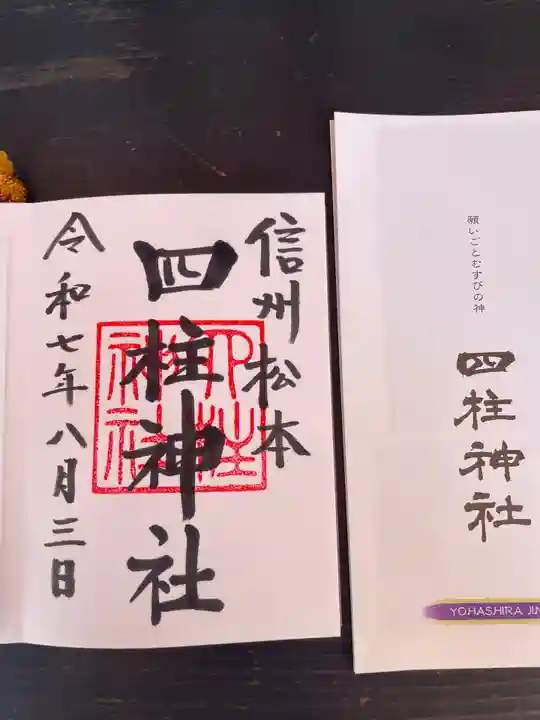 信州松本
四柱神社
四柱神社
令和七年八月三日
願いごとむすびの神
四柱神社
YOHASHIRA JIN